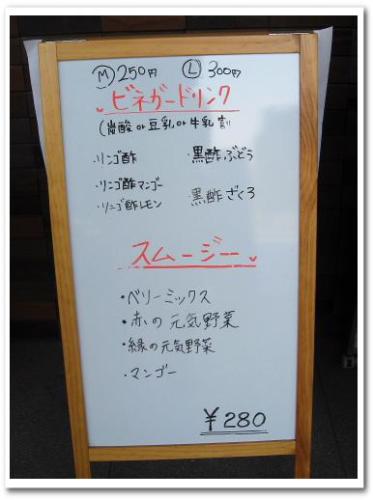 Ⓜ 250円 Ⓛ 300円
ビネガードリンク
(炭酸 or 豆乳 or 牛乳 割)
・リンゴ酢 黒酢ぶどう
・リンゴ酢マンゴー 黒酢ざくろ
・リンゴ酢レモン
スムージー
・ベリーミックス
・赤の元気野菜
・緑の元気野菜
・マンゴー
¥280